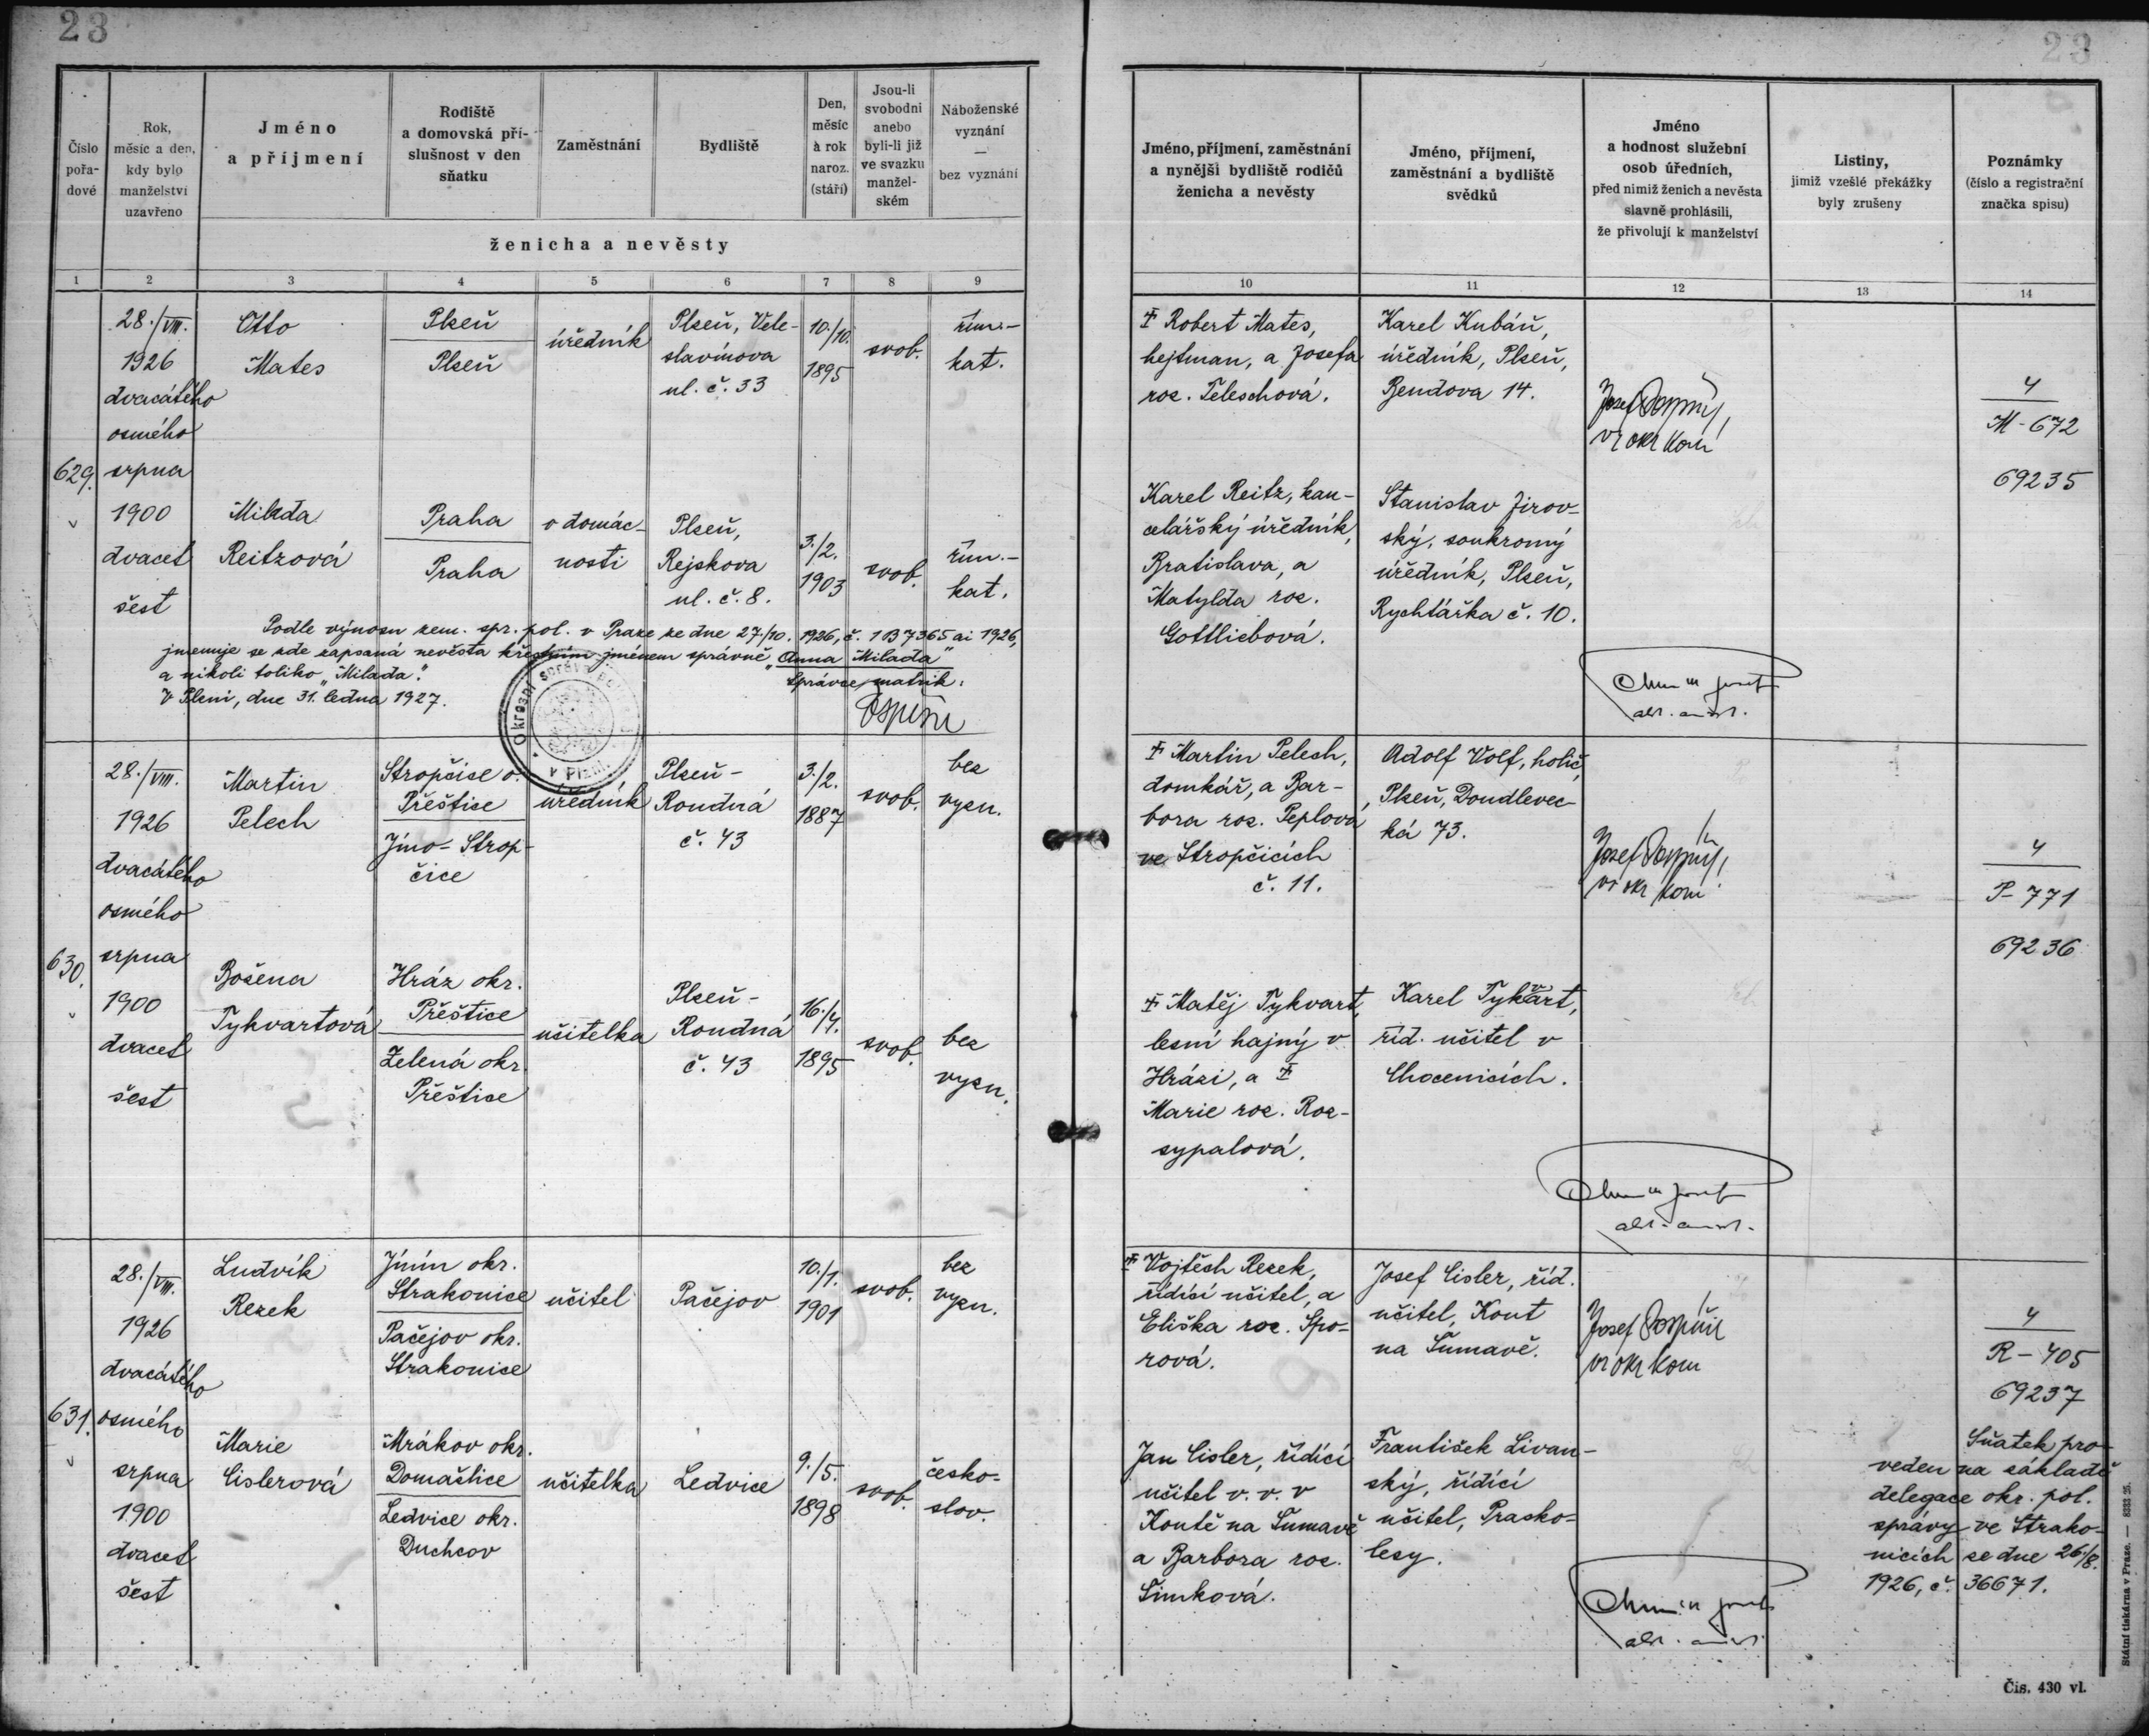 23
23
Číslo
pořa-
dové
Rok,
měsíc a den,
kdy bylo
manželství
uzavřeno
Jméno
a příjmení
Rodiště
a domovská pří-
slušnost v den
sňatku
Zaměstnání
Bydliště
Den,
měsíc
à rok
naroz.
(stáří)
Jsou-li
svobodni
anebo
byli-li již
ve svazku
manžel-
ském
Náboženské
vyznání
—
bez vyznání
ženicha a nevěsty
1 2 3 4 5 6 7 8 9
Jméno, příjmení, zaměstnání
a nynější bydliště rodičů
ženicha a nevěsty
Jméno, příjmení,
zaměstnání a bydliště
svědků
Jméno
a hodnost služební
osob úředních,
před nimiž ženich a nevěsta
slavně prohlásili,
že přivolují k manželství
Listiny,
jimiž vzešlé překážky
byly zrušeny
Poznámky
(číslo a registrační
značka spisu)
10 11 12 13 14
629.
28./VIII.
1926
dvacátého
osmého
srpna
1900
dvacet
šest
Otto
Mates
Plzeň
Plzeň
úředník
Plzeň, Vele-
slavínova
ul. č. 33
10./10.
1895
svob.
řím.-
kat.
Milada
Reitzová
Praha
Praha
v domác-
nosti
Plzeň,
Rejskova
ul. č. 8.
3./2.
1903
svob.
řím.-
kat.
Podle výnosu zem. spr. pol. v Praze ze dne 27./10. 1926, č. 1 B 7365 ai 1926,
jmenuje se zde zapsaná nevěsta křestním jménem správně „Anna Milada"
a nikoli toliko „Milada".
V Plzni, dne 31. ledna 1927.
Správce matrik:
Okresní správa
v Plzni
‡ Robert Mates,
hejtman, a Josefa
roz. Teleschová.
Karel Kubáň,
úředník, Plzeň,
Bendova 14.
Josef Pospíšil,
vr okr kom
4
M - 672
69235
Karel Reitz, kan-
celářský úředník,
Bratislava, a
Matylda roz.
Gottliebová.
Stanislav Jirov-
ský, soukromý
úředník, Plzeň,
Rychtářka č. 10.
630.
28./VIII.
1926
dvacátého
osmého
srpna
1900
dvacet
šest
Martin
Pelech
Stropčice o.
Přeštice
Jíno-Strop-
čice
úředník
Plzeň-
Roudná
č. 43
3./2.
1887
svob.
bez
vyzn.
Božena
Tykvartová
Hráz okr.
Přeštice
Zelená okr.
Přeštice
učitelka
Plzeň-
Roudná
č. 43
16./4.
1895
svob.
bez
vyzn.
‡ Martin Pelech,
domkář, a Bar-
bora roz. Peplova,
ve Stropčicích
č. 11.
Adolf Volf, holič,
Plzeň, Doudlevec-
ká 73.
Josef Pospíšil,
vr okr kom
4
P - 771
69236
‡ Matěj Tykvart,
lesní hajný v
Hrázi, a ‡
Marie roz. Roz-
sypalová.
Karel Tykvart,
říd. učitel v
Chocenicích.
631.
28./VIII.
1926
dvacátého
osmého
srpna
1900
dvacet
šest
Ludvík
Rezek
Jinín okr.
Strakonice
Pačejov okr.
Strakonice
učitel
Pačejov
10./1.
1901
svob.
bez
vyzn.
Marie
Cislerová
Mrákov okr.
Domažlice
Ledvice okr.
Duchcov
učitelka
Ledvice
9./5.
1898
svob.
česko-
slov.
‡ Vojtěch Rezek,
řídící učitel, a
Eliška roz. Špo-
rová.
Josef Cisler, říd.
učitel, Kout
na Šumavě.
Josef Pospíšil
vr okr kom
4
R - 405
69237
Jan Cisler, řídící
učitel v. v. v
Koutě na Šumavě
a Barbora roz.
Šimková.
František Livan-
ský, řídící
učitel, Prasko-
lesy.
Sňatek pro-
veden na základě
delegace okr. pol.
správy ve Strako-
nicích ze dne 26./8.
1926, č. 36671.
Státní tiskárna v Praze. — 8333 25.
Čís. 430 vl.